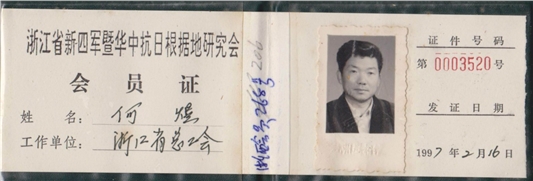 浙江省新四军暨华中抗日根据地研究会
会员证
姓名：何煜
工作单位：浙江省总工会
206
证件号码
第0003520号
发证日期
1997年2月16日